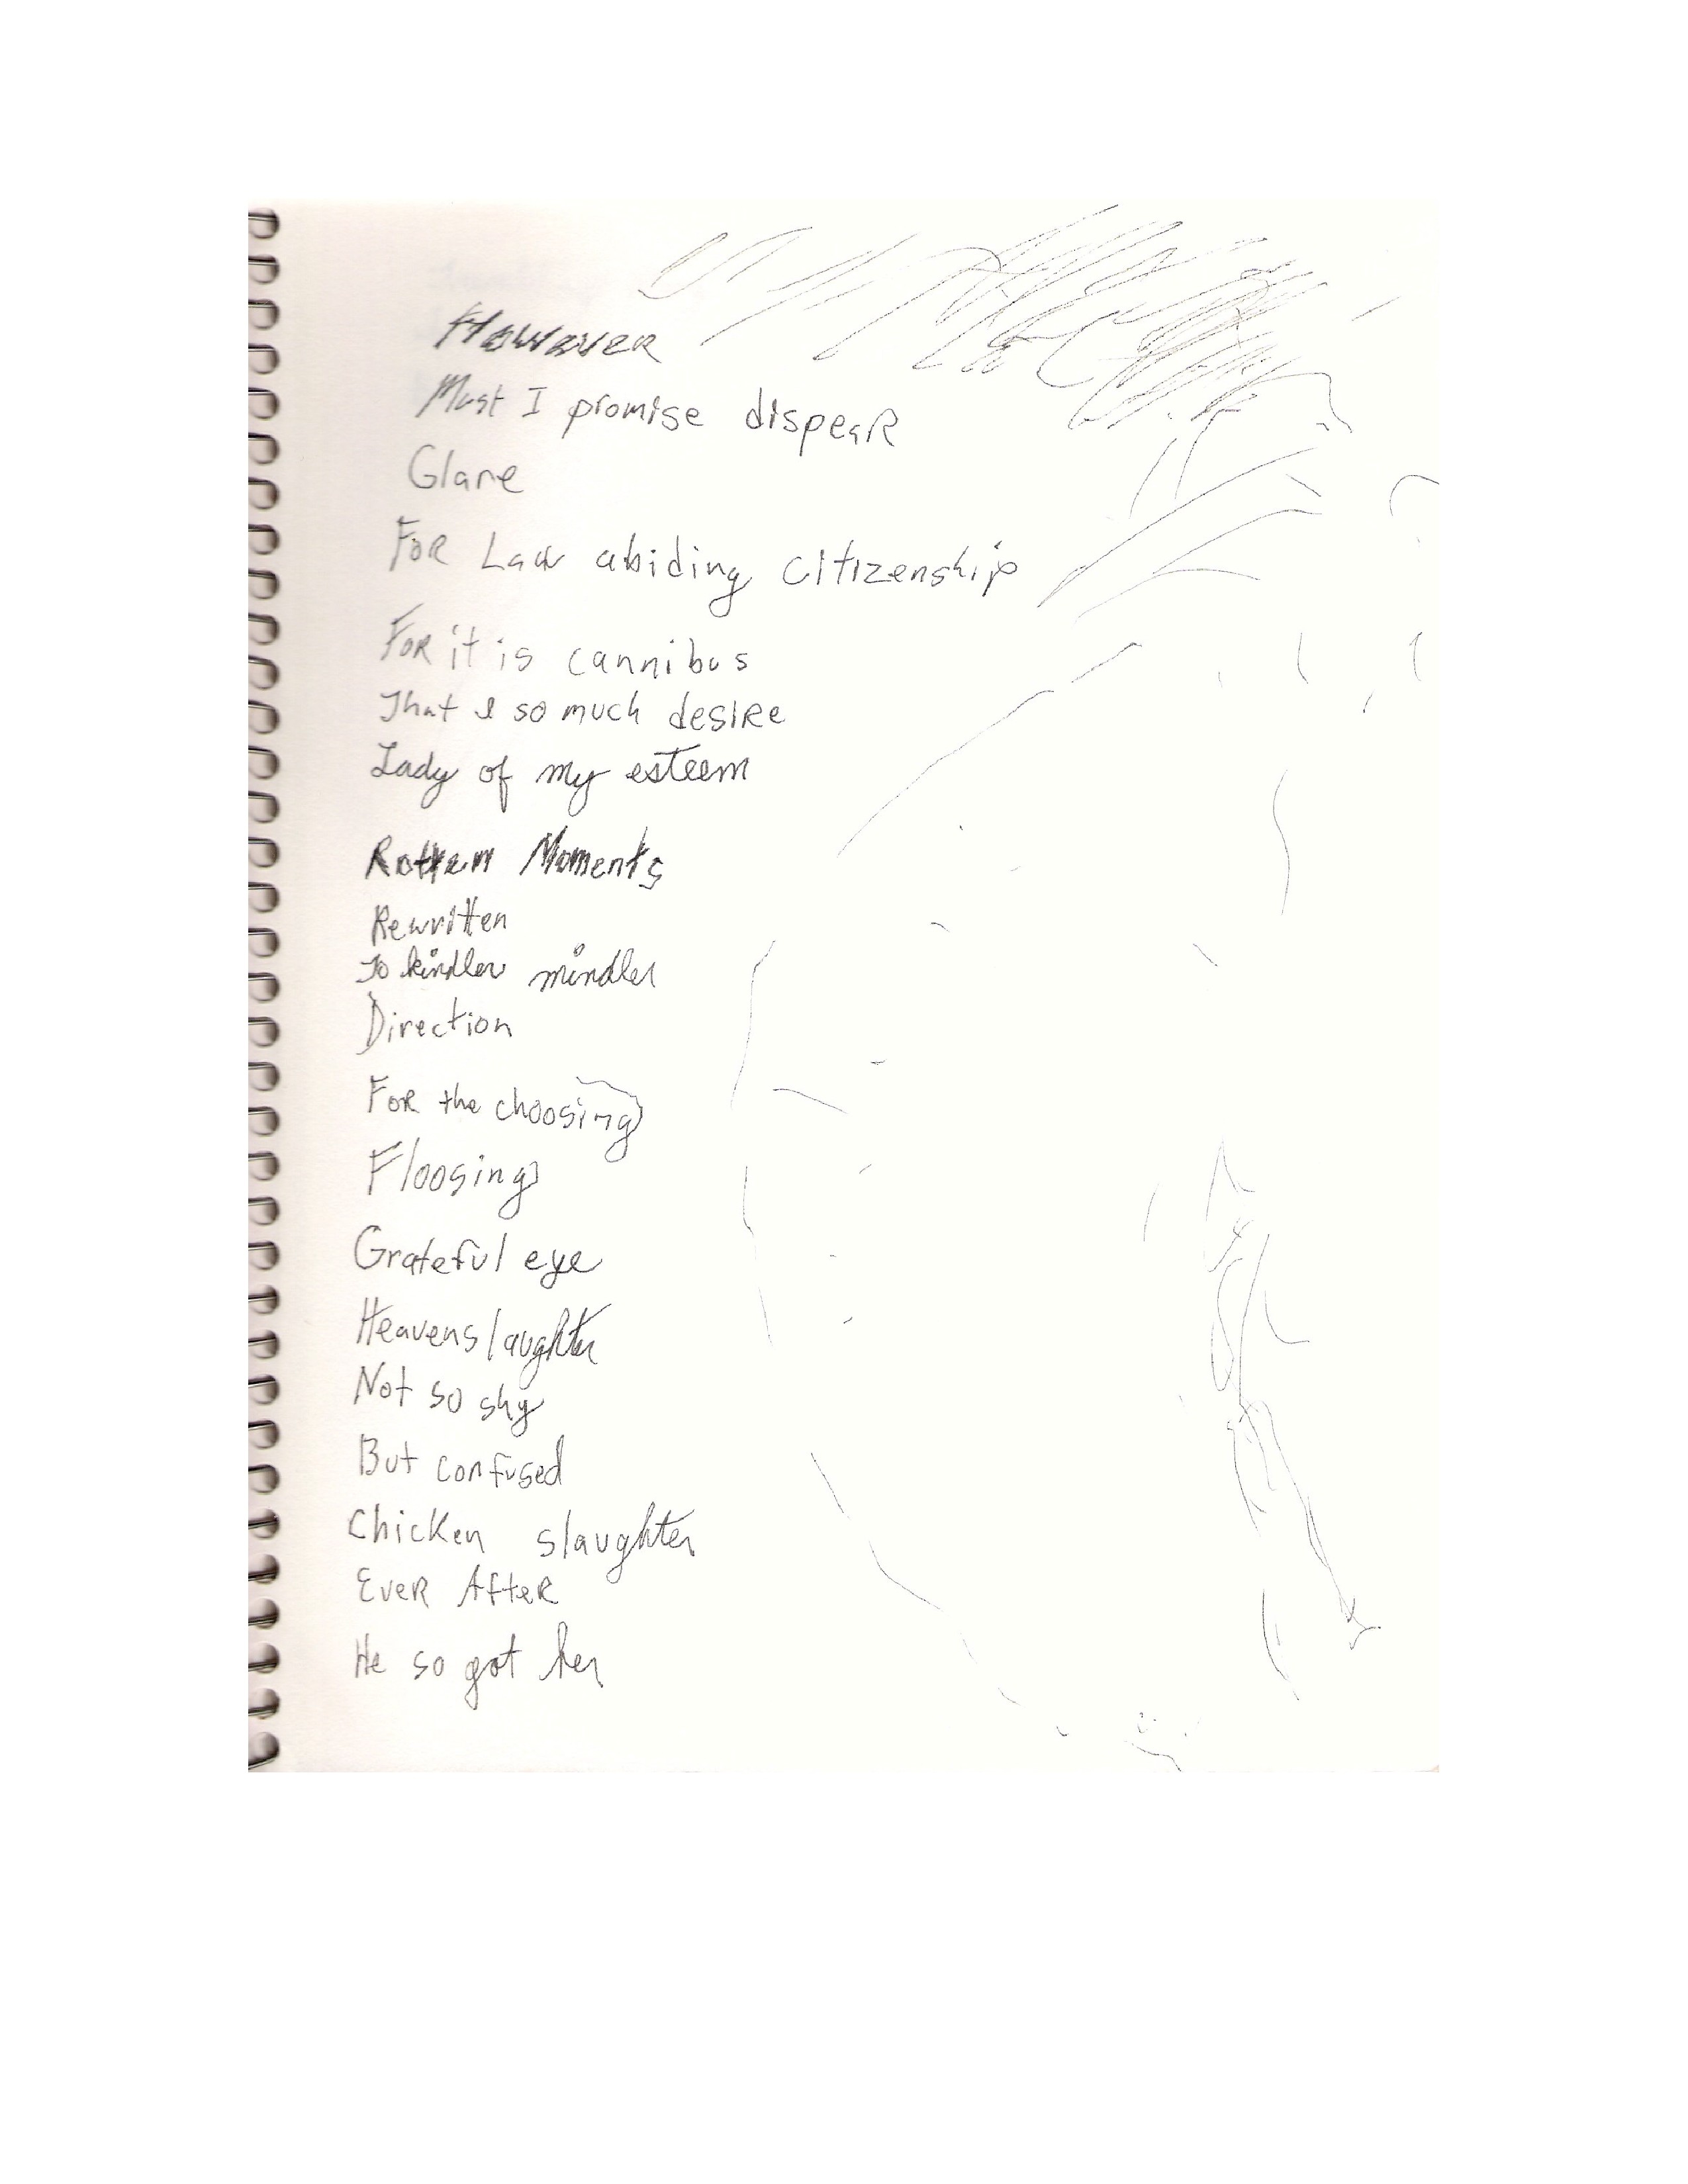 However
Must I promise dispear
Glare
For Law abiding citizenship
For it is cannibus
That I so much desire
Lady of my esteem
Rotten Moments
Rewritten
To kindler mindler
Direction
For the choosing
Floosing
Grateful eye
Heavens laughter
Not so shy
But confused
Chicken slaughter
Ever After
He so got her